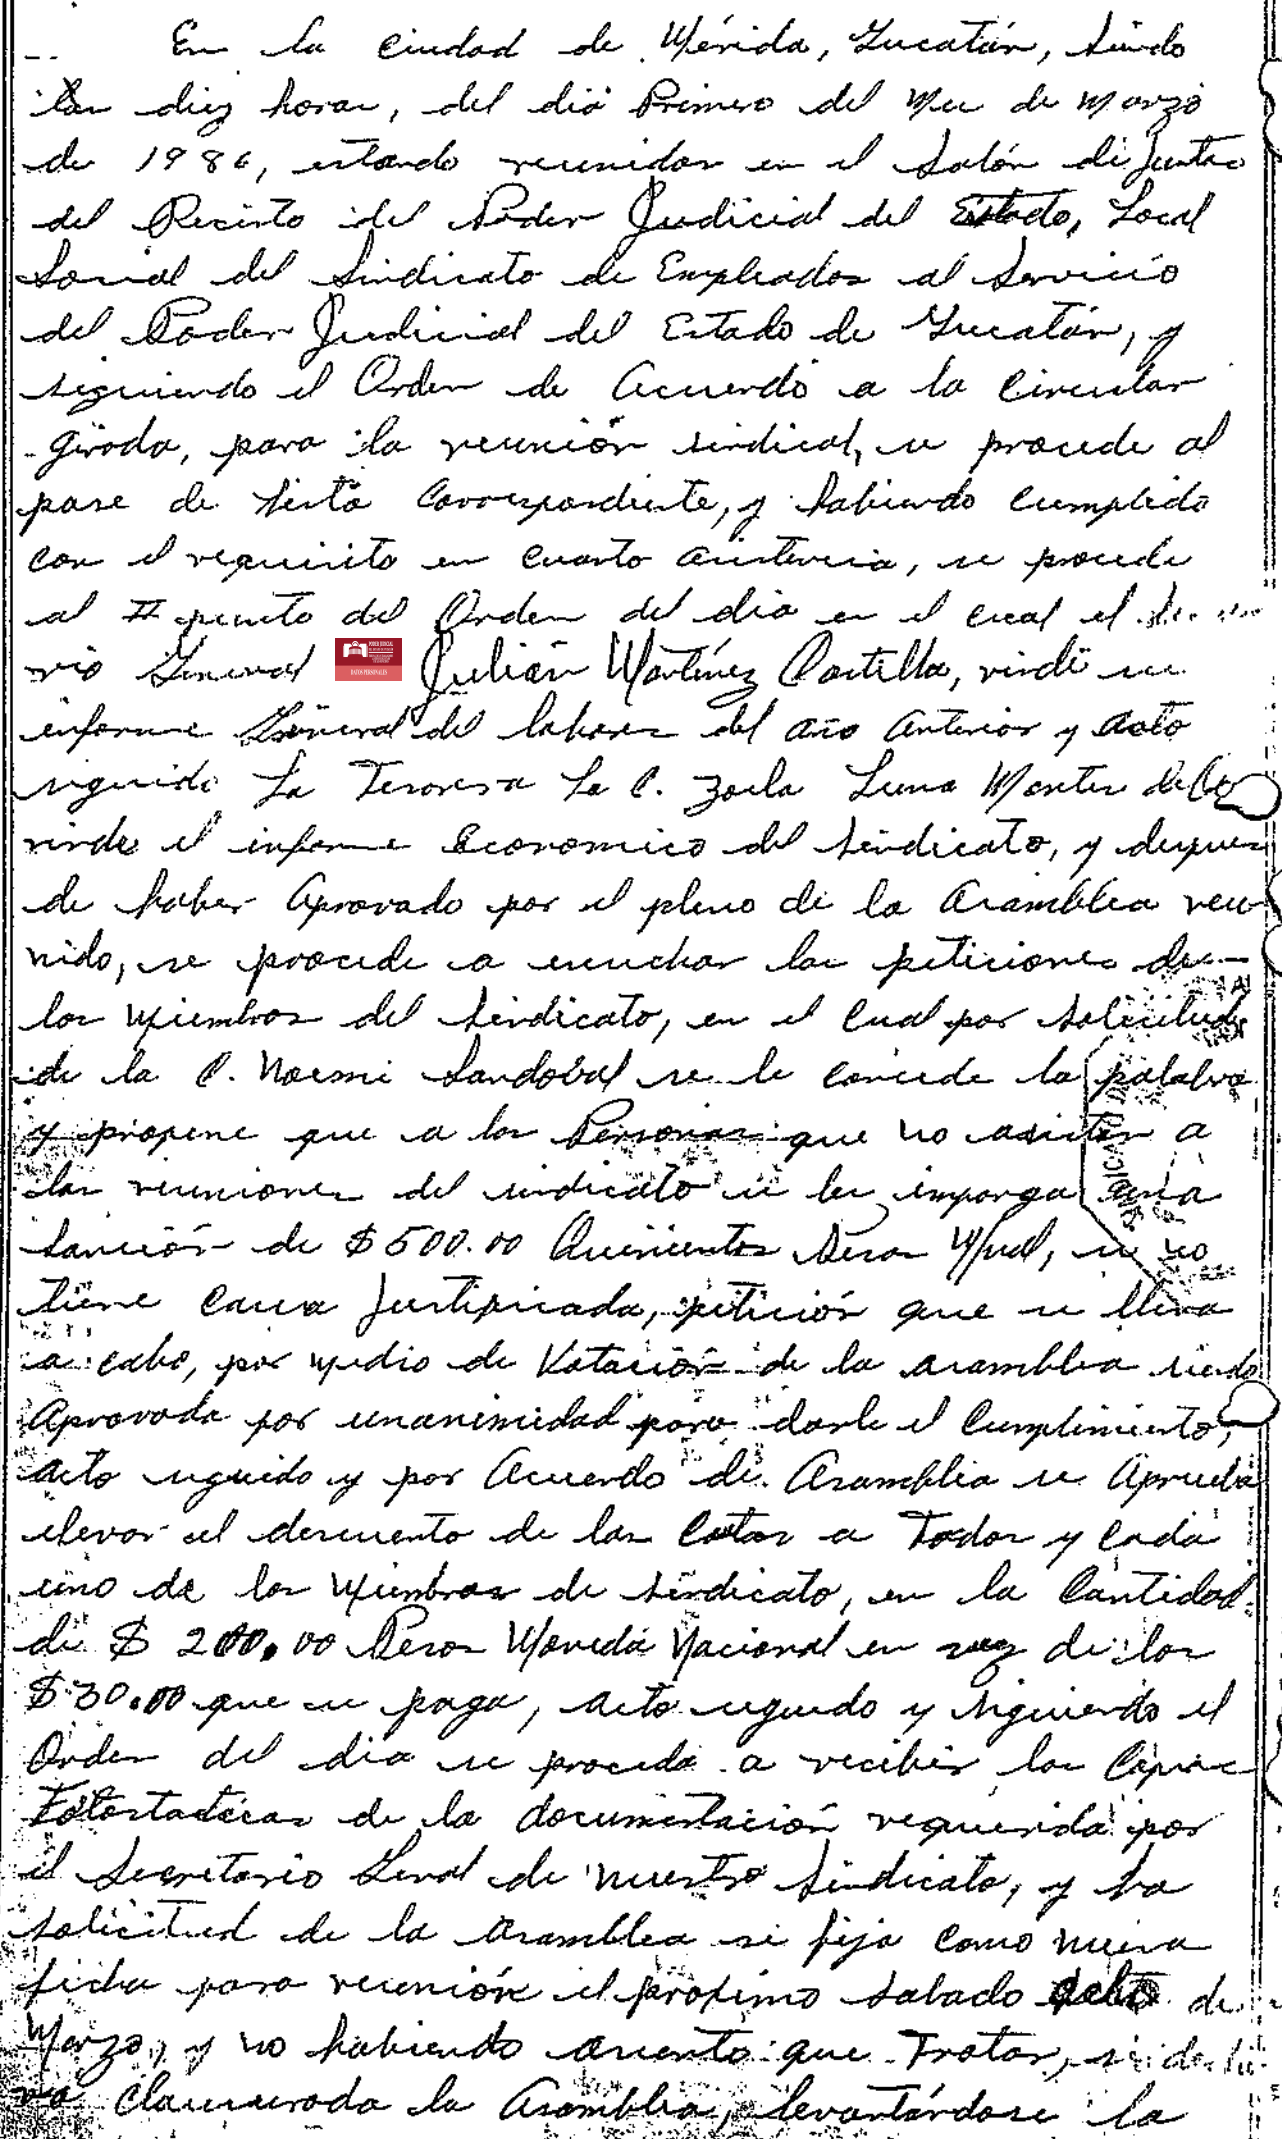 En la Ciudad de Mérida, Yucatán, siendo
las diez horas, del día Primero del Mes de Marzo
de 1986, estando reunidos en el Salón de Juntas
del Recinto del Poder Judicial del Estado, Local
Social del Sindicato de Empleados al Servicio
del Poder Judicial del Estado de Yucatán, y
siguiendo el Orden de Acuerdo a la Circular
Girada, para la reunión sindical, se procede al
pase de lista Correspondiente, y habiendo Cumplido
con el requisito en cuanto asistencia, se procede
al II punto del Orden del dia en el cual el
rio General PODER JUDICIAL DATOS PERSONALES Julián Martínez Castilla, rinde su
informe General del labores del año Anterior y acto
seguido La Tesorera La C. Zoila Luna Montes de
rinde el informe Economico del Sindicato, y despues
de haber Aprovado por el pleno de la Asamblea reu
nido, se procede a escuchar las peticiones de
los Miembros del Sindicato, en el Cual por solicitud
de la C. Noemi Sandoval se le concede la palabra
y propene que a las Personas que no asistan a
las reuniones del sindicato se les imponga una
Sanción de $500.00 Quinientos Pesos M/nal, si no
tiene Causa Justificada, petición que se lleva
a cabo, por medio de Votación de la asamblea siendo
Aprovada por unanimidad para darle el Cumplimiento,
acto seguido y por Acuerdo de Asamblea se Aprueba
elevar el descuento de las Cotas a Todos y Cada
uno de los Miembros de Sindicato, en la Cantidad
de $ 200.00 Pesos Moneda Nacional en vez de los
$30.00 que se paga, acto seguido y siguiendo el
Orden del dia se procede a recibir las Copias
Fotostaticas de la documentación requerida por
el Secretario Genal de nuestro Sindicato, y ha
solicitud de la Asamblea se fija como nueva
fecha para reunión el proximo sabado ocho de
Marzo, y no habiendo asunto que Tratar, se
clausurada la Asamblea, levantándose la